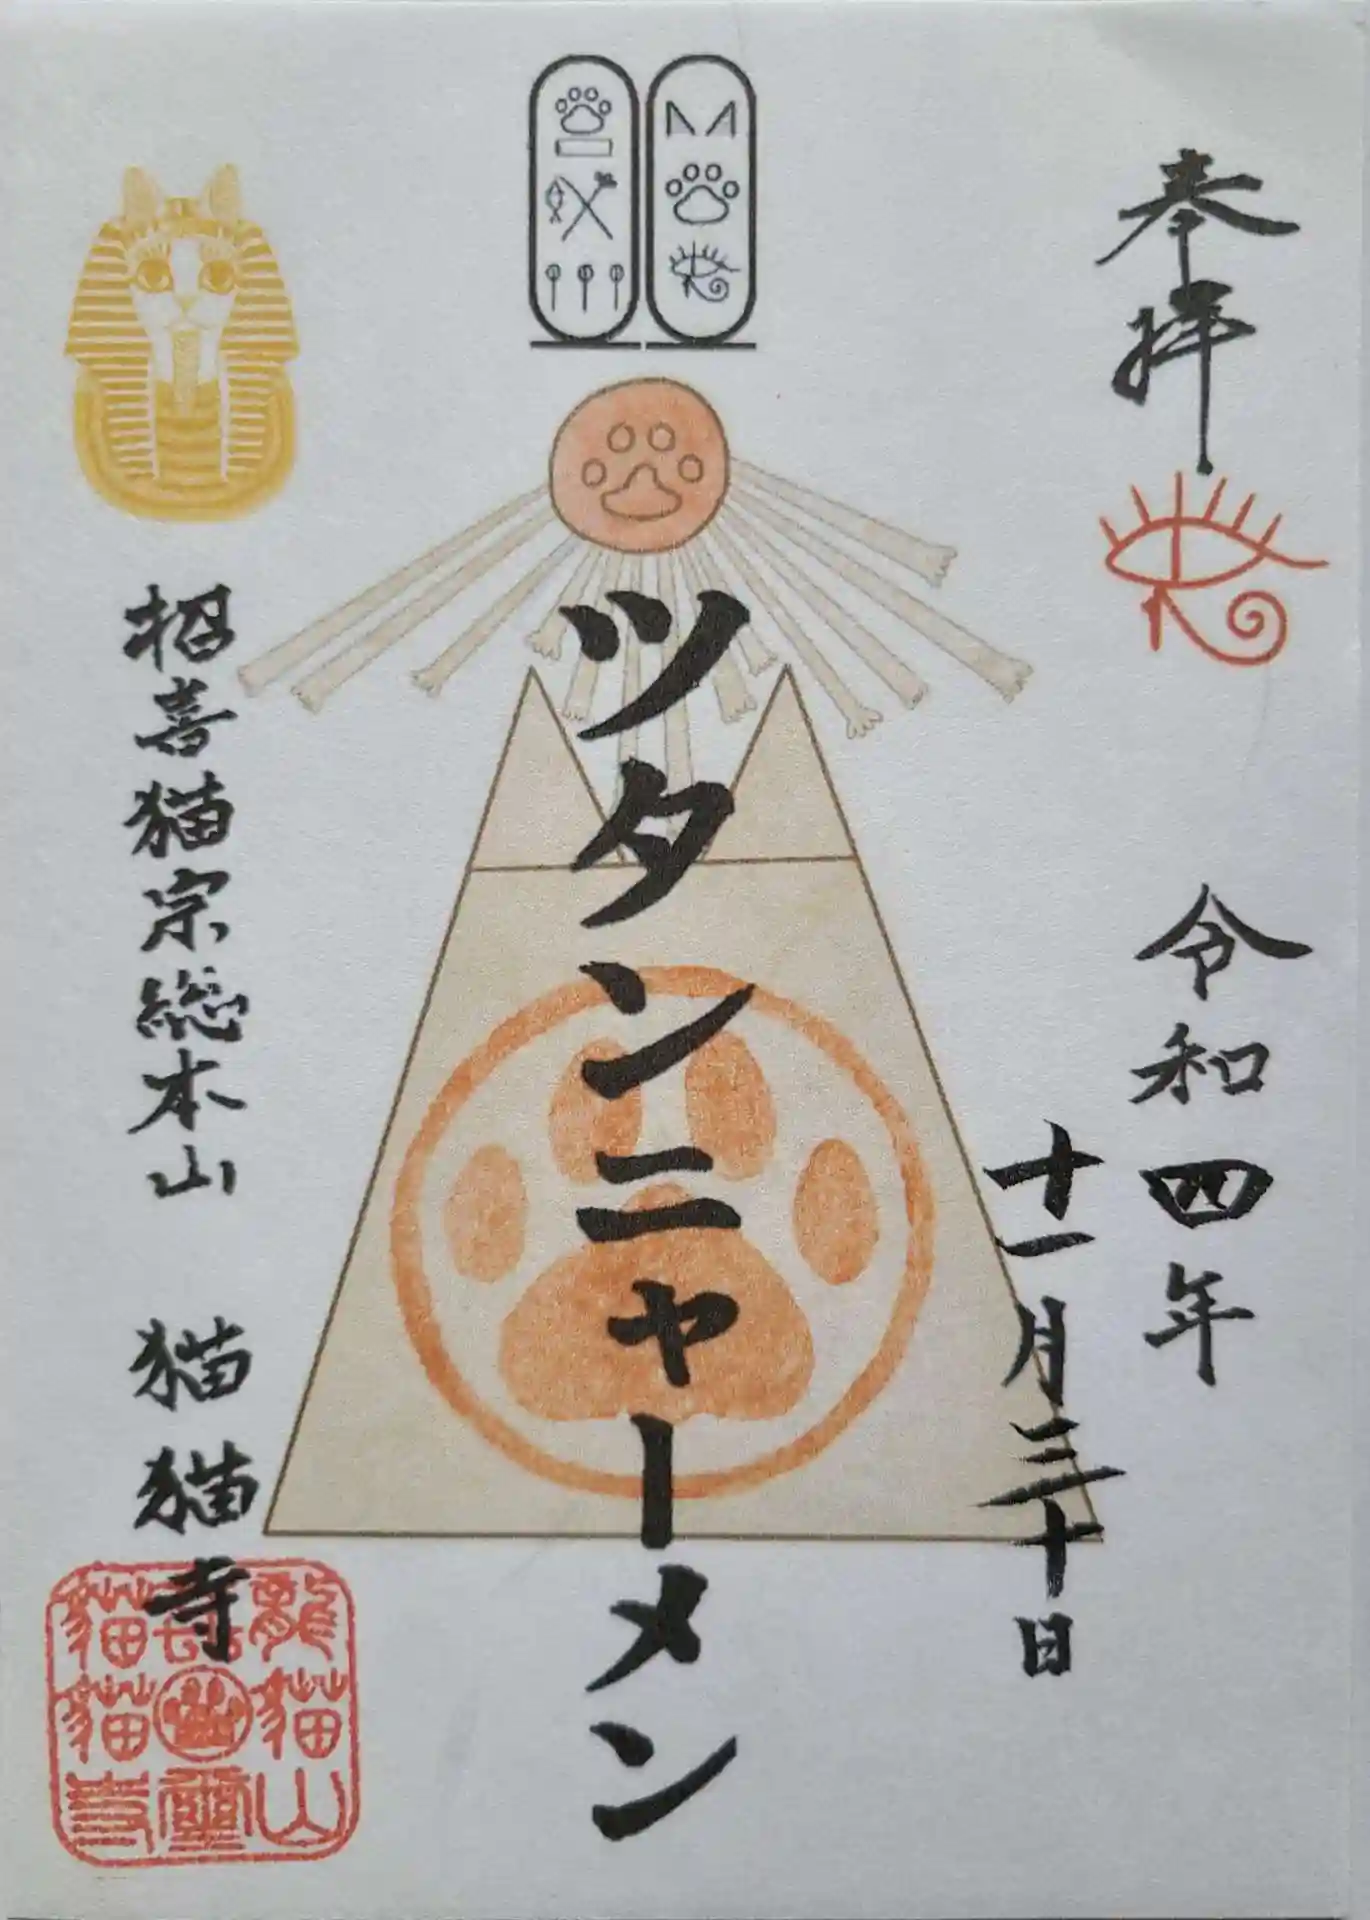 奉拝
令和四年
十一月三十日
ツタンニャーメン
招喜猫宗総本山 猫猫寺
龍猫山
猫猫寺